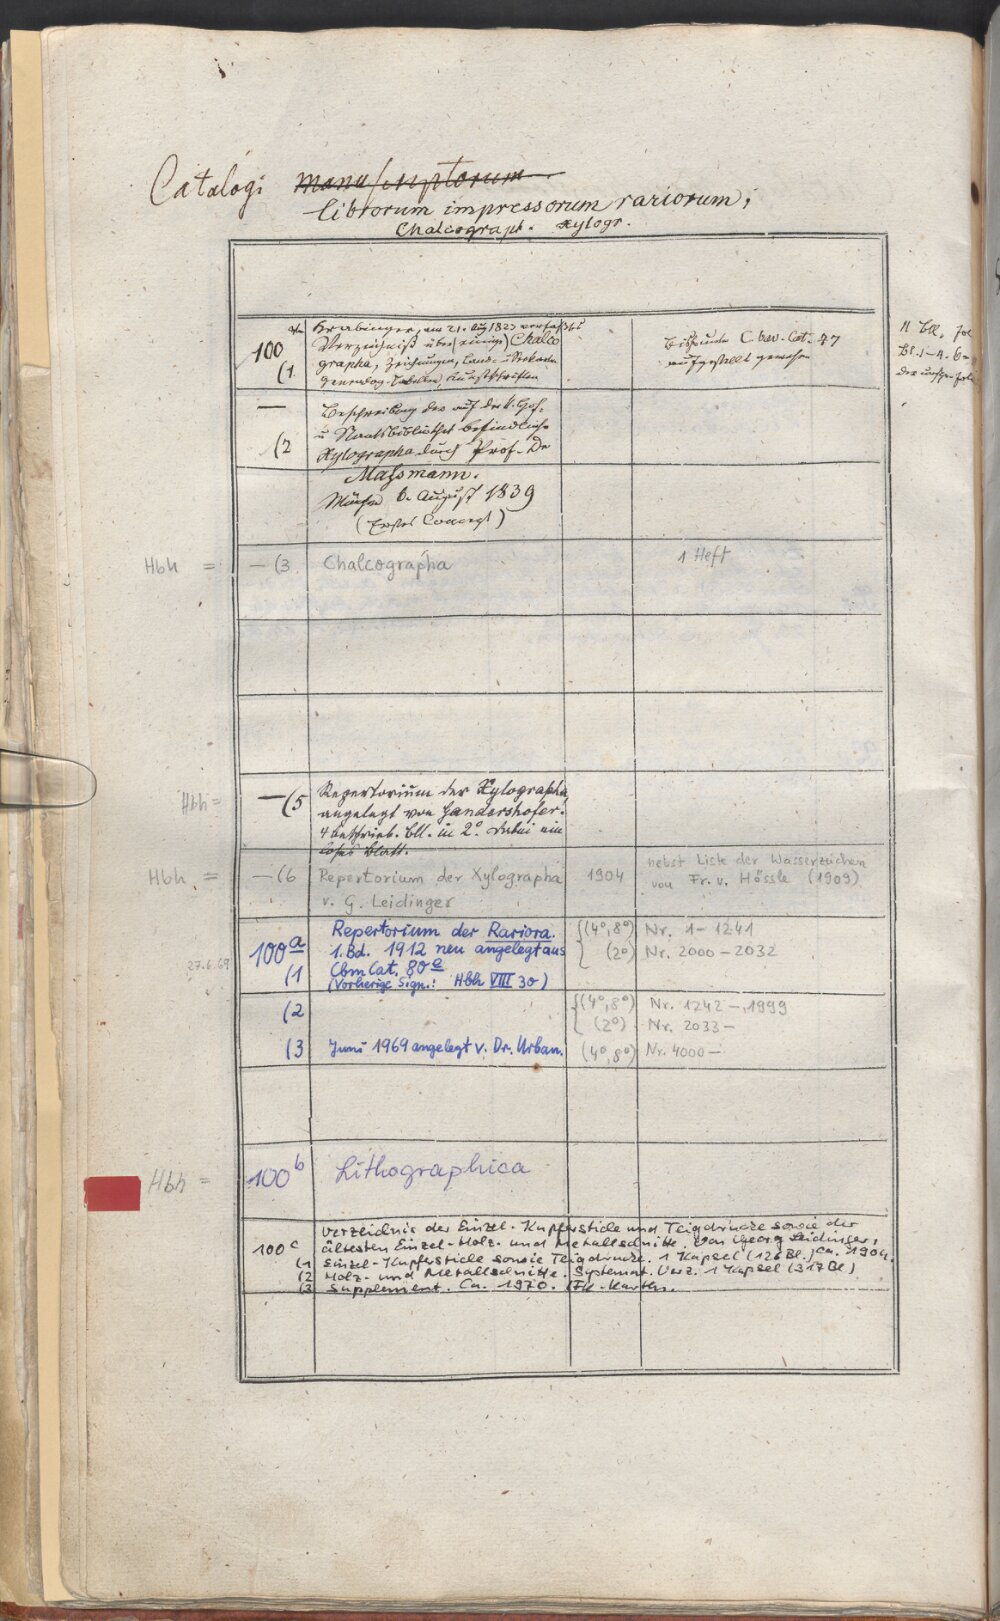 Catalogi manuscriptorum
librorum impressorum rariorum;
Chalcograph. Xylogr.
100 (1
Krabinger, am 21. Aug 1823 verfaßtes
Verzeichniß über (einige) Chalco
grapha, Zeichnungen, Land- u
genealog. Tabellen, Kunstschriften
Bisher unter C. bav. Cat. 47
aufgestellt gewesen
11 Bll. fol
Bl. 1-4. 6
— (2
Beschreibung der auf der K. Hof-
u Staatsbibliothek befindlichen
Xylographa durch Prof. Dr
Maßmann.
München 6. August 1839
(Erstes Concept)
Hbh = — (3 Chalcographa 1 Heft
Hbh = — (5 Repertorium der Xylographa,
angelegt von Gandershofer.
4 beschrieb. Bll. in 2°. Dabei ein
loses Blatt.
Hbh. = — (6 Repertorium der Xylographa 1904 nebst Liste der Wasserzeichen
v. G. Leidinger von Fr. v. Hössle (1909)
100a Repertorium der Rariora. (4°, 8°) Nr. 1-1241
1. Bd. 1912 neu angelegt aus (2°) Nr. 2000-2032
27.6.69 (1 Cbm Cat. 80e
(Vorherige Sign.: Hbh VIII 30)
(2 (4°, 8°) Nr. 1242-1999
(2°) Nr. 2033-
(3 Juni 1969 angelegt v. Dr. Urban. (4°, 8°) Nr. 4000-
Hbh = 100b Lithographica
100c Verzeichnis der Einzel-Kupferstiche und Teigdrucke sowie der
ältesten Einzel-Holz- und Metallschnitte. Von Georg Leidinger,
ca. 1904.
(1 Einzel-Kupferstiche sowie Teigdrucke. 1 Kapsel (126 Bl.)
(2 Holz- und Metallschnitte. Systemat. Verz. 1 Kapsel (317 Bl)
(3 Supplement. Ca. 1970.